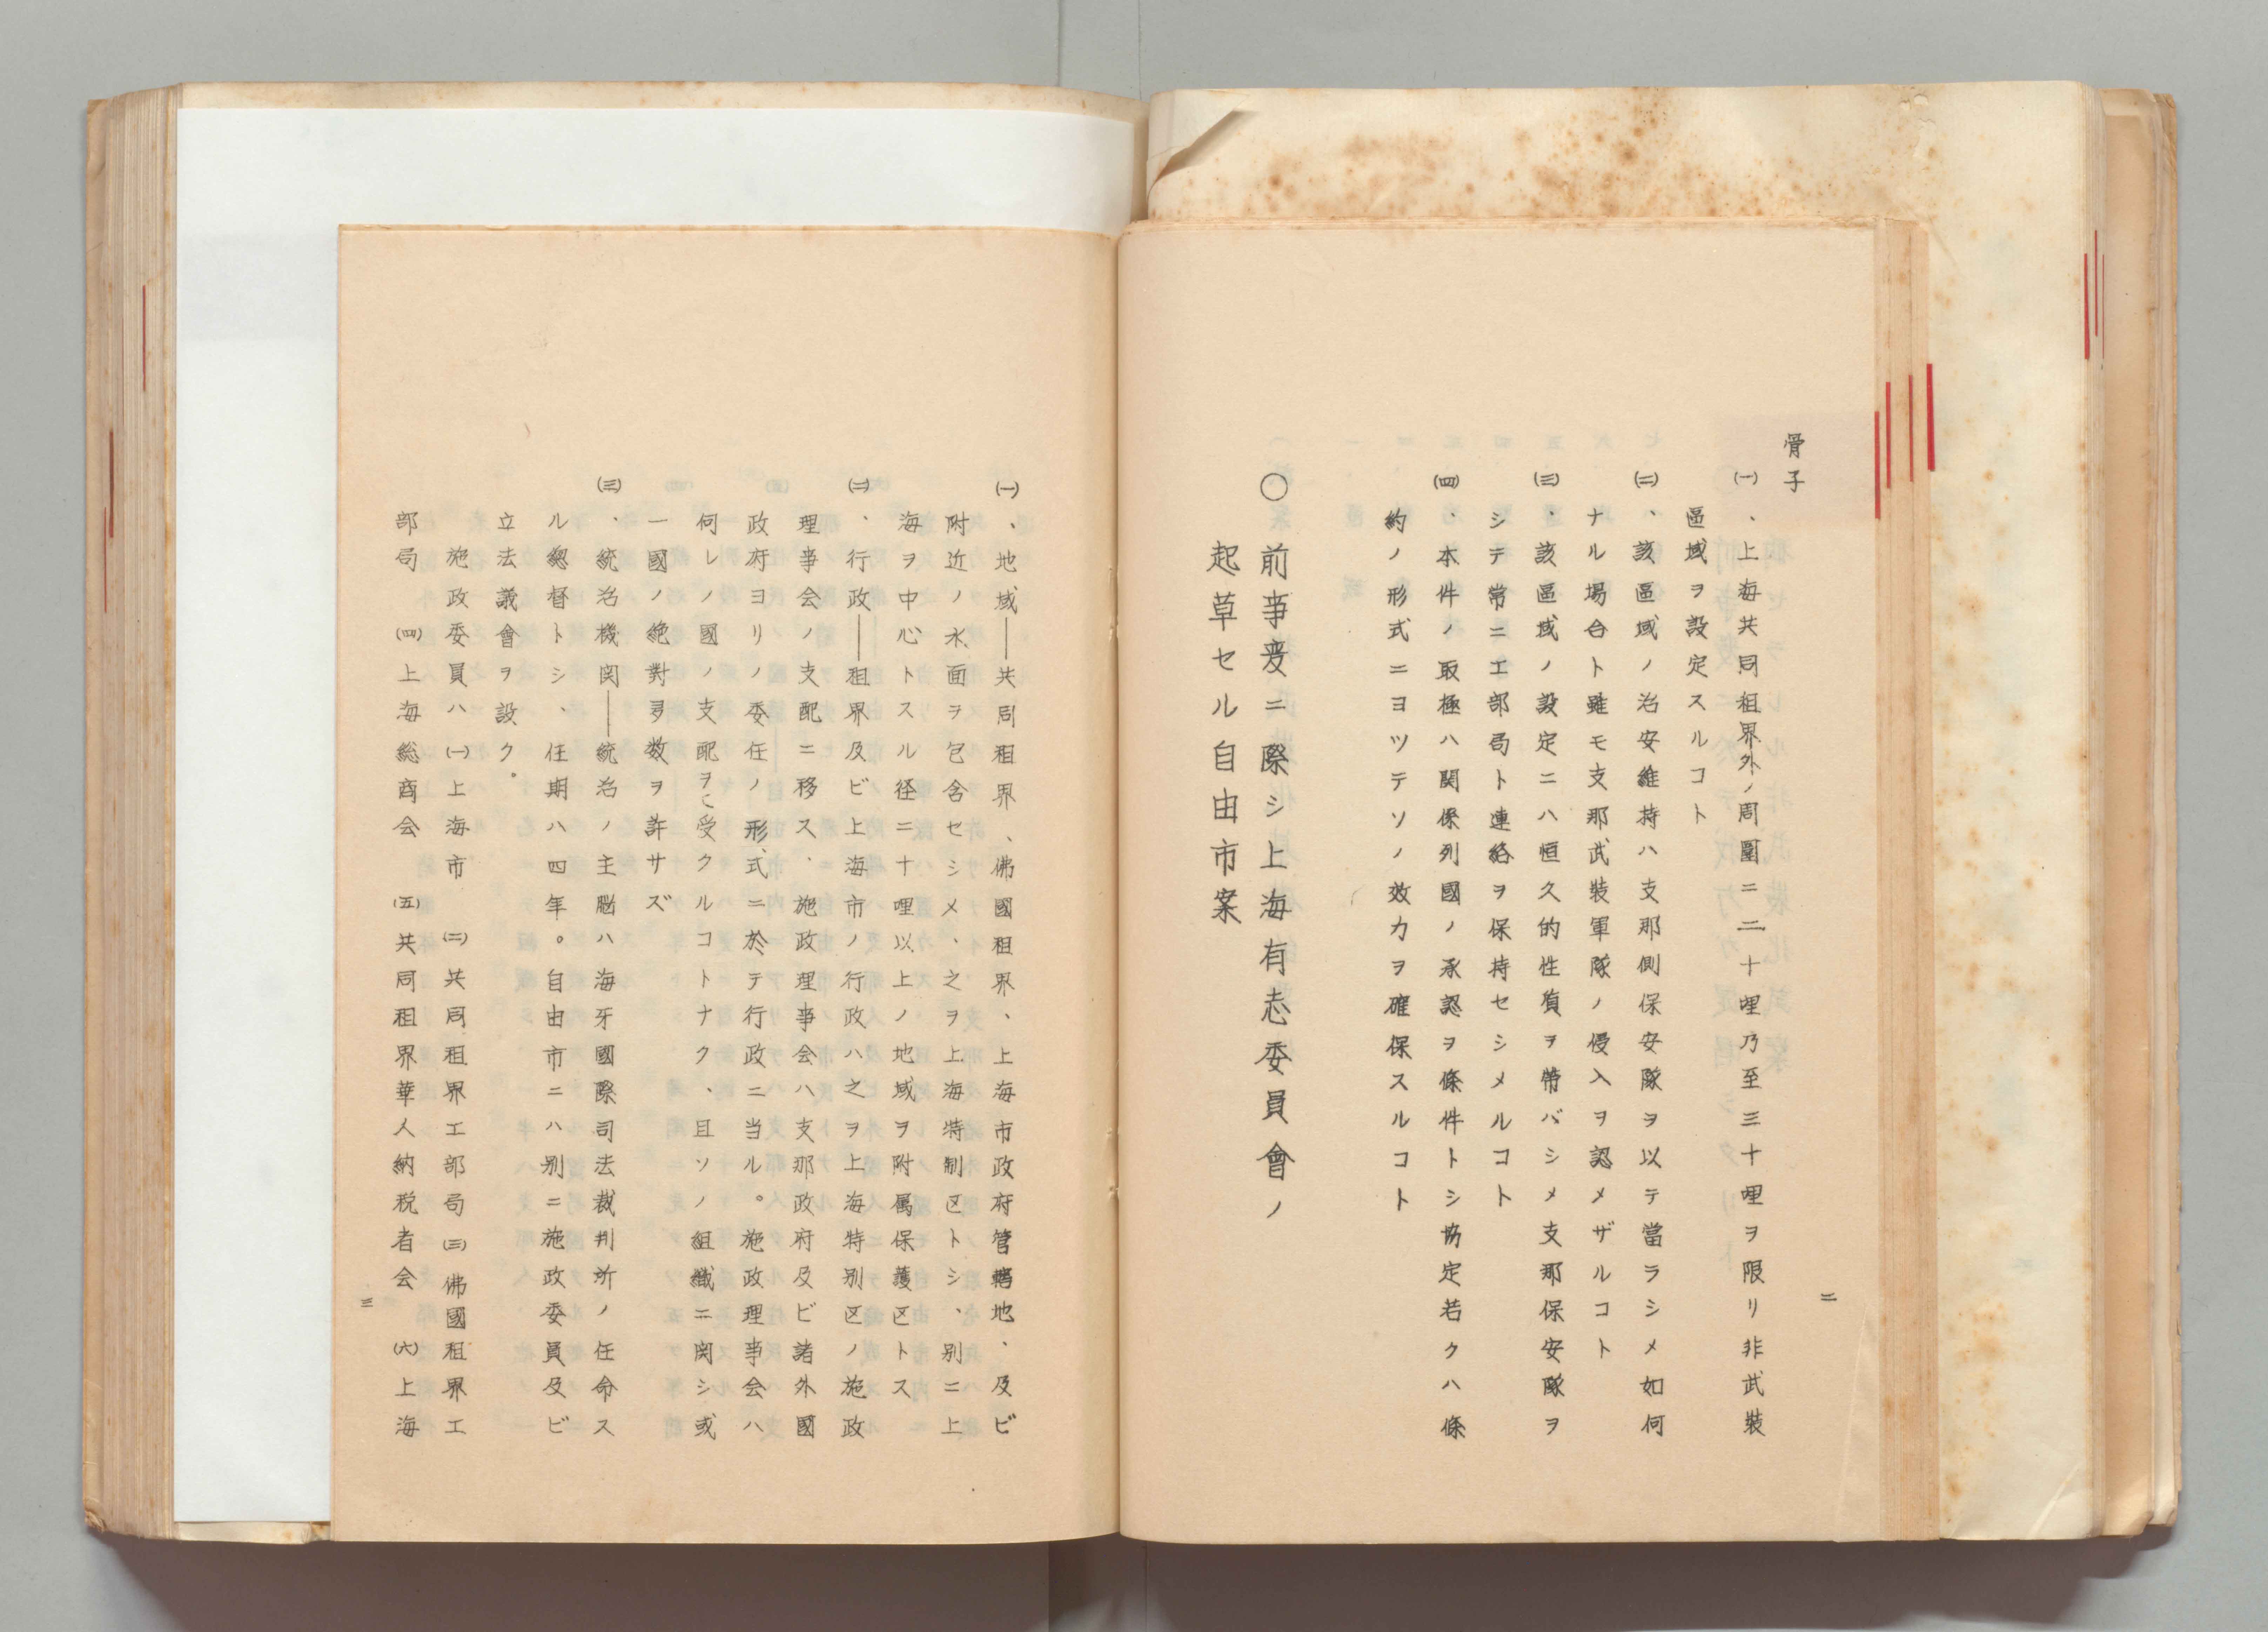 二
骨子
㈠、上海共同租界外ノ周圍ニ二十哩乃至三十哩ヲ限リ非武裝
區域ヲ設定スルコト
㈡、該區域ノ治安維持ハ支那側保安隊ヲ以テ當ラシメ如何
ナル場合ト雖モ支那武裝軍隊ノ侵入ヲ認メザルコト
㈢、該區域ノ設定ニハ恒久的性質ヲ帶バシメ支那保安隊ヲ
シテ常ニ工部局ト連絡ヲ保持セシメルコト
㈣、本件ノ取極ハ関係列國ノ承認ヲ條件トシ協定若クハ條
約ノ形式ニヨツテソノ效力ヲ確保スルコト
○前事変ニ際シ上海有志委員會ノ
起草セル自由市案
㈠、地域──共同租界、佛國租界、上海市政府管轄地、及ビ
附近ノ水面ヲ包含セシメ、之ヲ上海特制区トシ、別ニ上
海ヲ中心トスル径二十哩以上ノ地域ヲ附属保護区トス
㈡、行政──租界及ビ上海市ノ行政ハ之ヲ上海特別区ノ施政
理事会ノ支配ニ移ス、施政理事会ハ支那政府及ビ諸外國
政府ヨリノ委任ノ形式ニ於テ行政ニ当ル。施政理事会ハ
何レノ國ノ支配ヲモ受クルコトナク、且ソノ組織ニ関シ或
一國ノ絶對多数ヲ許サズ
㈢、統治機関──統治ノ主脳ハ海牙國際司法裁判所ノ任命ス
ル總督トシ、任期ハ四年。自由市ニハ別ニ施政委員及ビ
立法議會ヲ設ク。
施政委員ハ㈠上海市 ㈡共同租界工部局㈢佛國租界工
部局 ㈣上海総商会 ㈤共同租界華人納税者会 ㈥上海
三